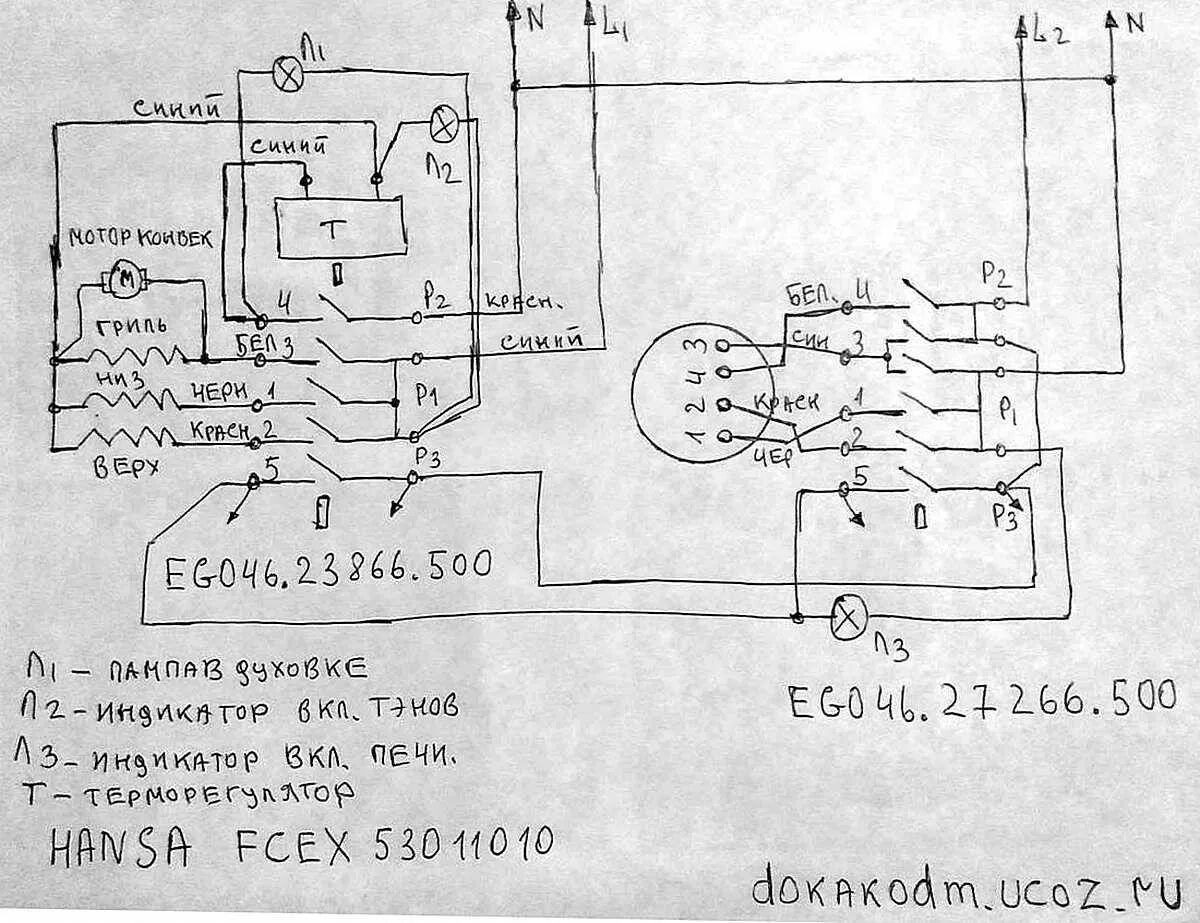 N
L1
L2
N
Л1
СИНИЙ
СИНИЙ
Л2
Т
МОТОР КОНВЕК
М
ГРИЛЬ
НИЗ
ВЕРХ
4
P2
КРАСН.
БЕЛ 3
СИНИЙ
ЧЕРН 1
P1
КРАСН 2
P3
5
EGO46.23866.500
P2
БЕЛ. 4
СИН 3
3
4
2
1
КРАСН
1
P1
ЧЕР
2
5
P3
Л3
EGO46.27266.500
Л1 – ЛАМПА В ДУХОВКЕ
Л2 – ИНДИКАТОР ВКЛ. ТЭНОВ
Л3 – ИНДИКАТОР ВКЛ. ПЕЧИ.
Т – ТЕРМОРЕГУЛЯТОР
HANSA FCEX 53011010
dokakodm.ucoz.ru